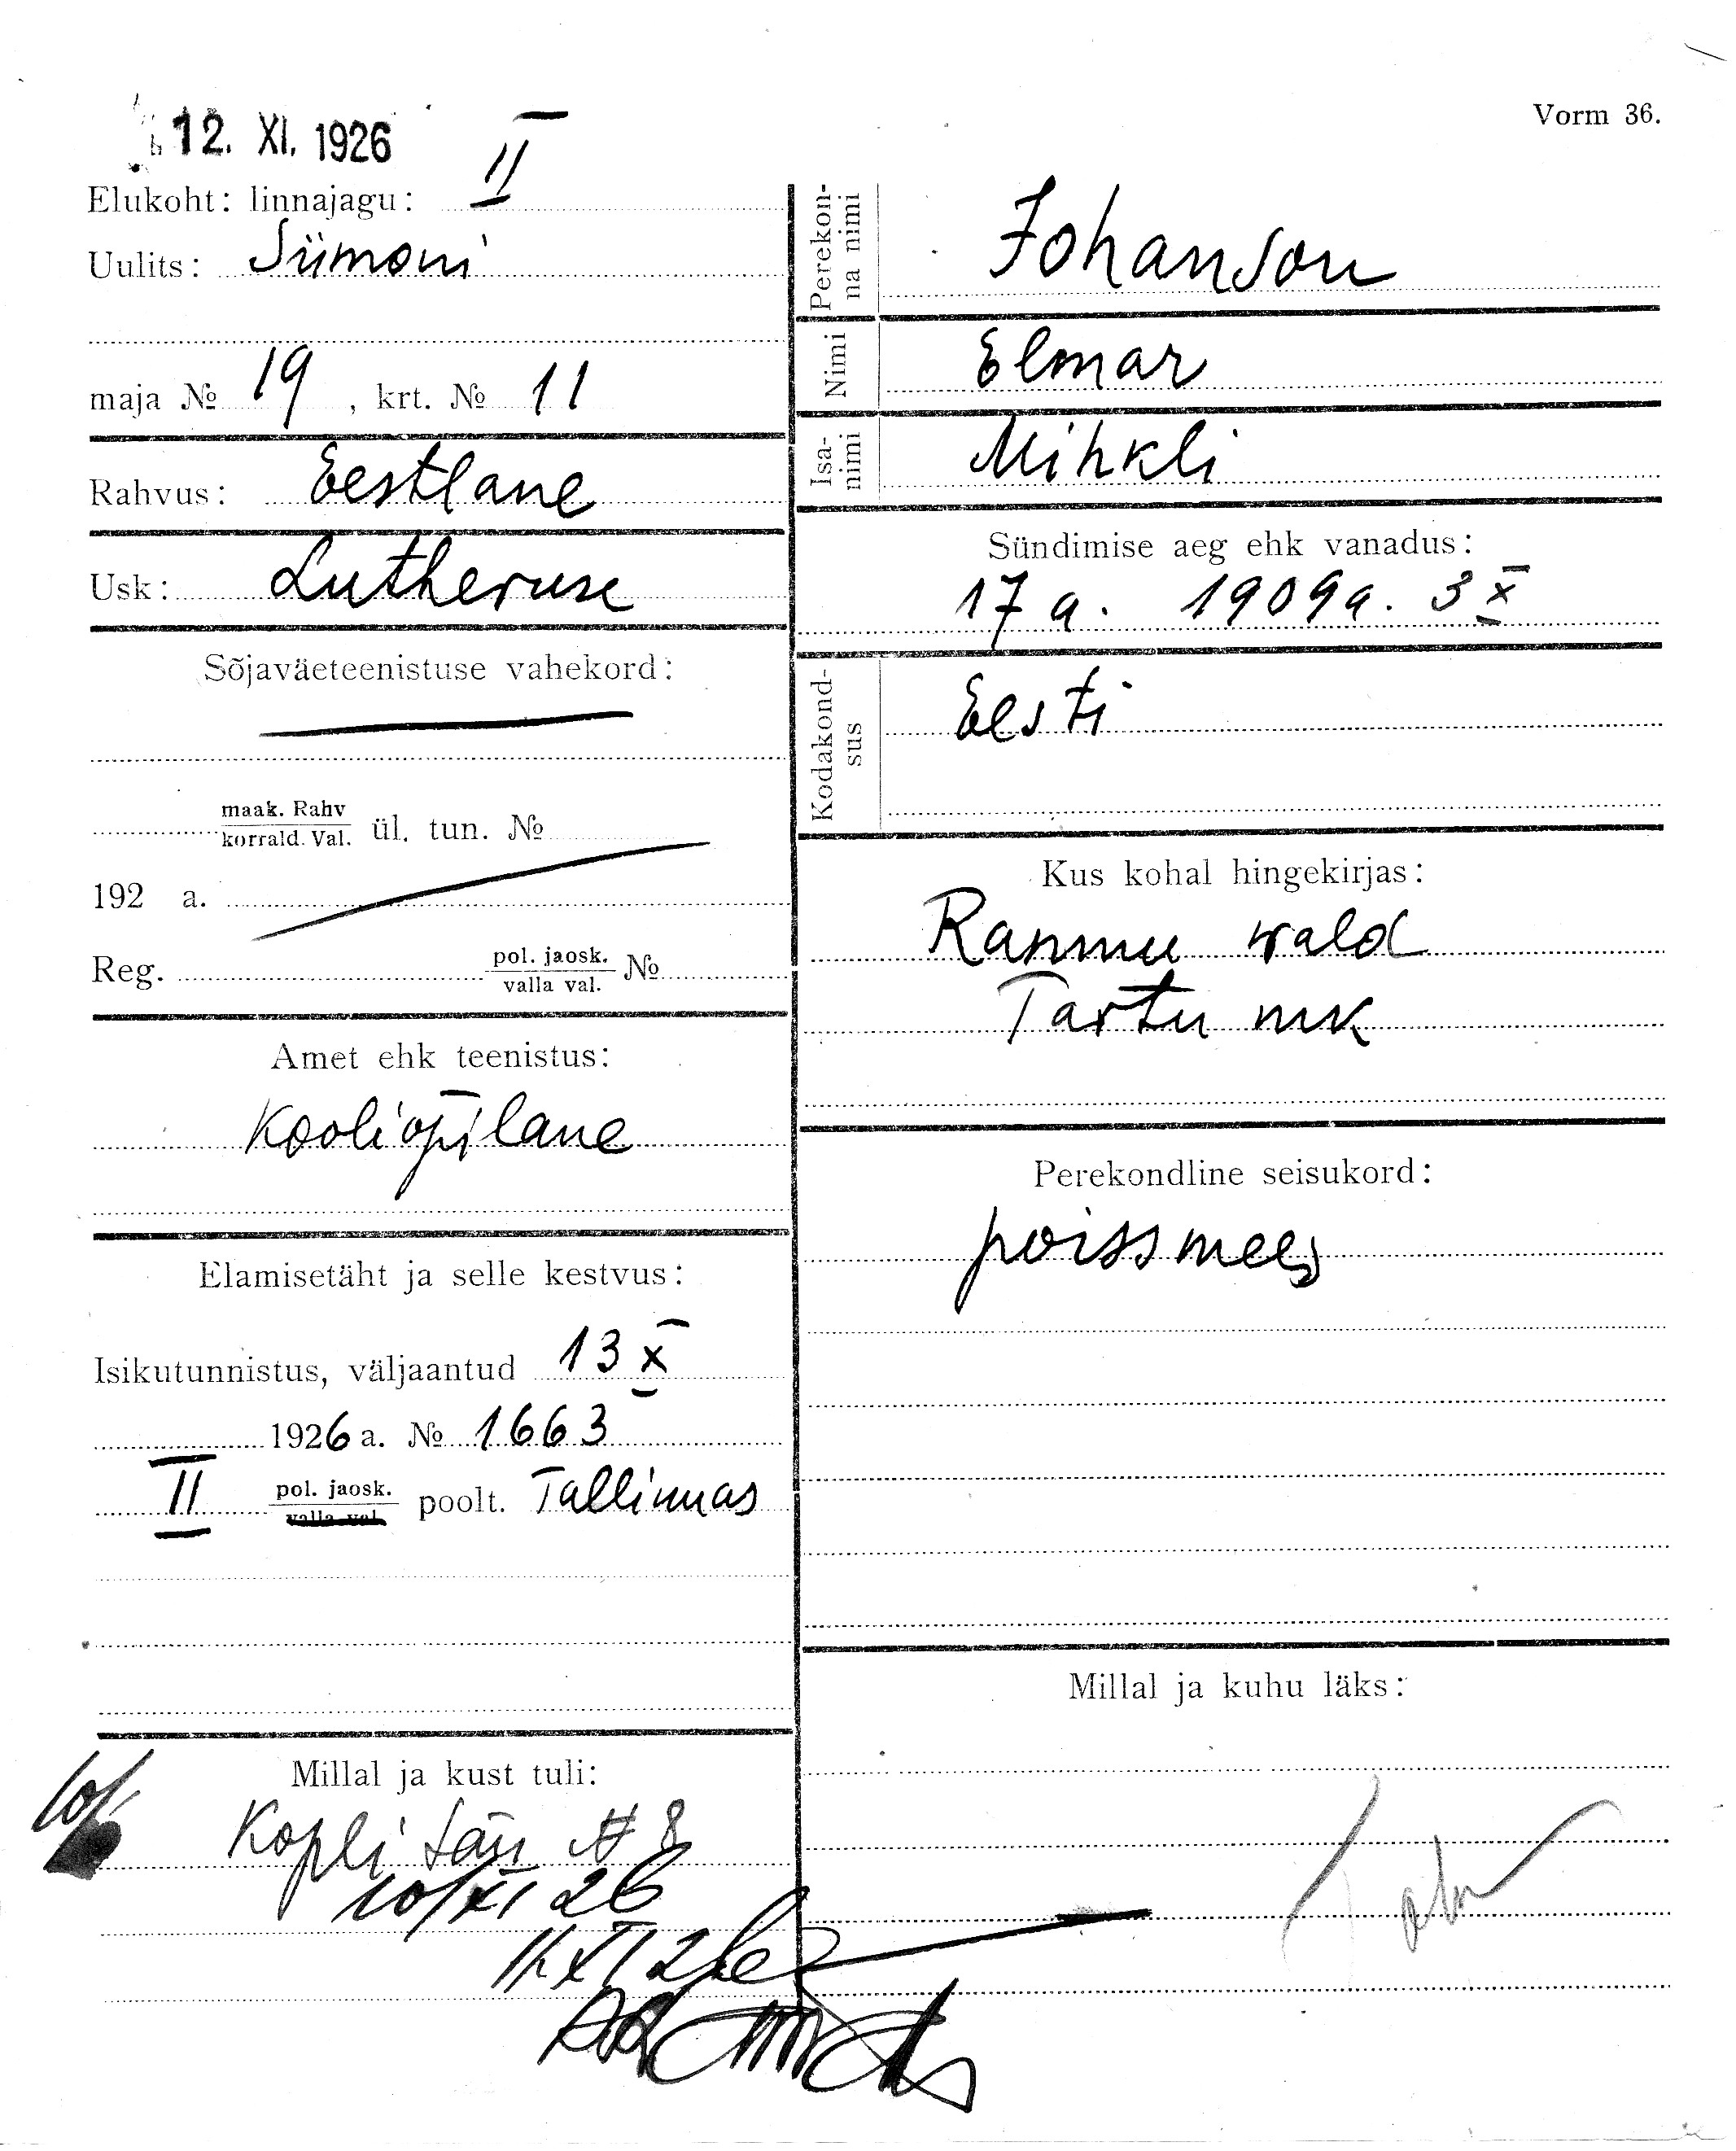 Vorm 36.
12. XI. 1926
Elukoht: linnajagu: II
Uulits: Siimoni
maja № 19, krt. № 11
Rahvus: Eestlane
Usk: Lutheruse
Sõjaväeteenistuse vahekord:
maak. Rahv
korrald. Val. ül. tun. №
192 a.
Reg. pol. jaosk. №
valla val.
Amet ehk teenistus:
Kooliõpilane
Elamisetäht ja selle kestvus:
Isikutunnistus, väljaantud 13 X
1926 a. № 1663
II pol. jaosk. poolt. Tallinnas
valla val.
Millal ja kust tuli:
Kopli tän № 8
10/XI 26
11 XI 26
Perekonna nimi Johanson
Nimi Elmar
Isanimi Mihkli
Sündimise aeg ehk vanadus:
17 a. 1909 a. 3 X
Kodakondsus Eesti
Kus kohal hingekirjas:
Rannu vald
Tartu mk
Perekondline seisukord:
poissmees
Millal ja kuhu läks: